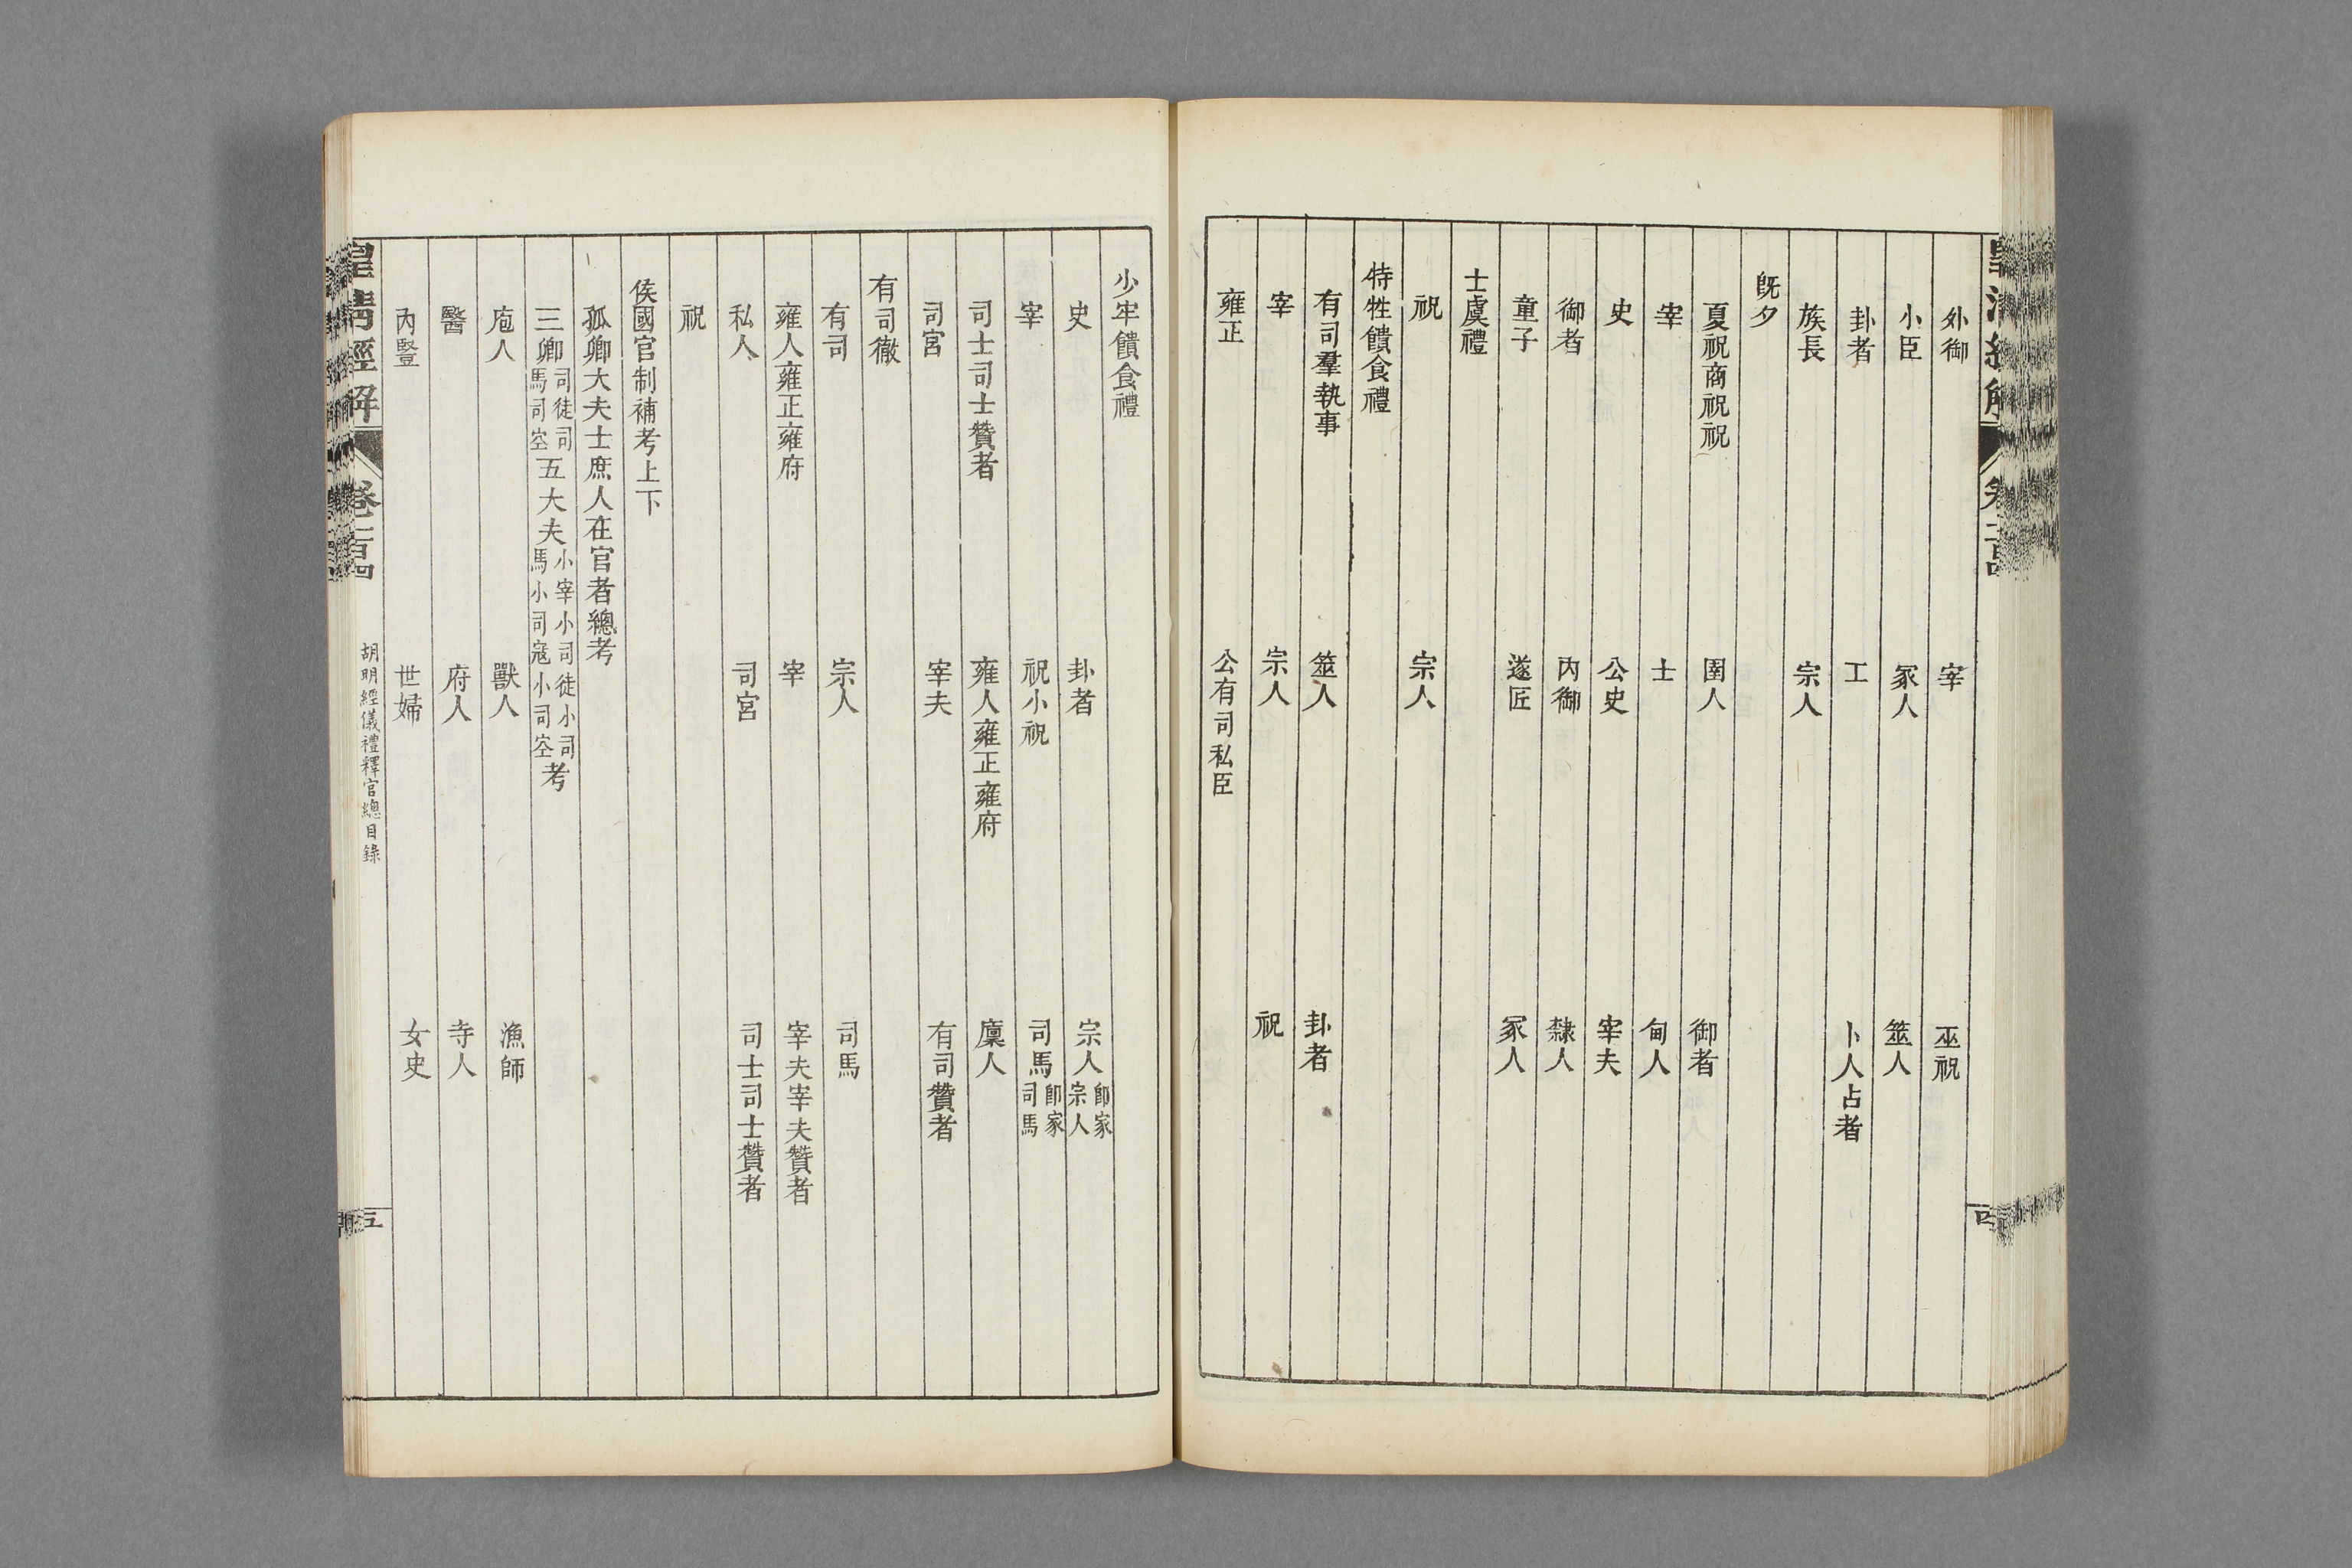 外御　宰　巫祝
小臣　冢人　筮人
卦者　工　卜人占者
族長　宗人
旣夕
夏祝商祝祝　圉人　御者
宰　士　甸人
史　公史　宰夫
御者　內御　隸人
童子　遂匠　冢人
士虞禮
祝　宗人
特牲饋食禮
有司羣執事　筮人　卦者
宰　宗人　祝
雍正　公有司私臣
少牢饋食禮
史　卦者　宗人卽家宗人
宰　祝小祝　司馬卽家司馬
司士司士贊者　雍人雍正雍府　廩人
司宮　宰夫　有司贊者
有司徹
有司　宗人　司馬
雍人雍正雍府　宰　宰夫宰夫贊者
私人　司宮　司士司士贊者
祝
侯國官制補考上下
孤卿大夫士庶人在官者總考
三卿司徒司馬司空五大夫小宰小司徒小司馬小司寇小司空考
庖人　獸人　漁師
醫　府人　寺人
內豎　世婦　女史
皇淸經解　卷一百四　胡明經儀禮釋官總目錄　五